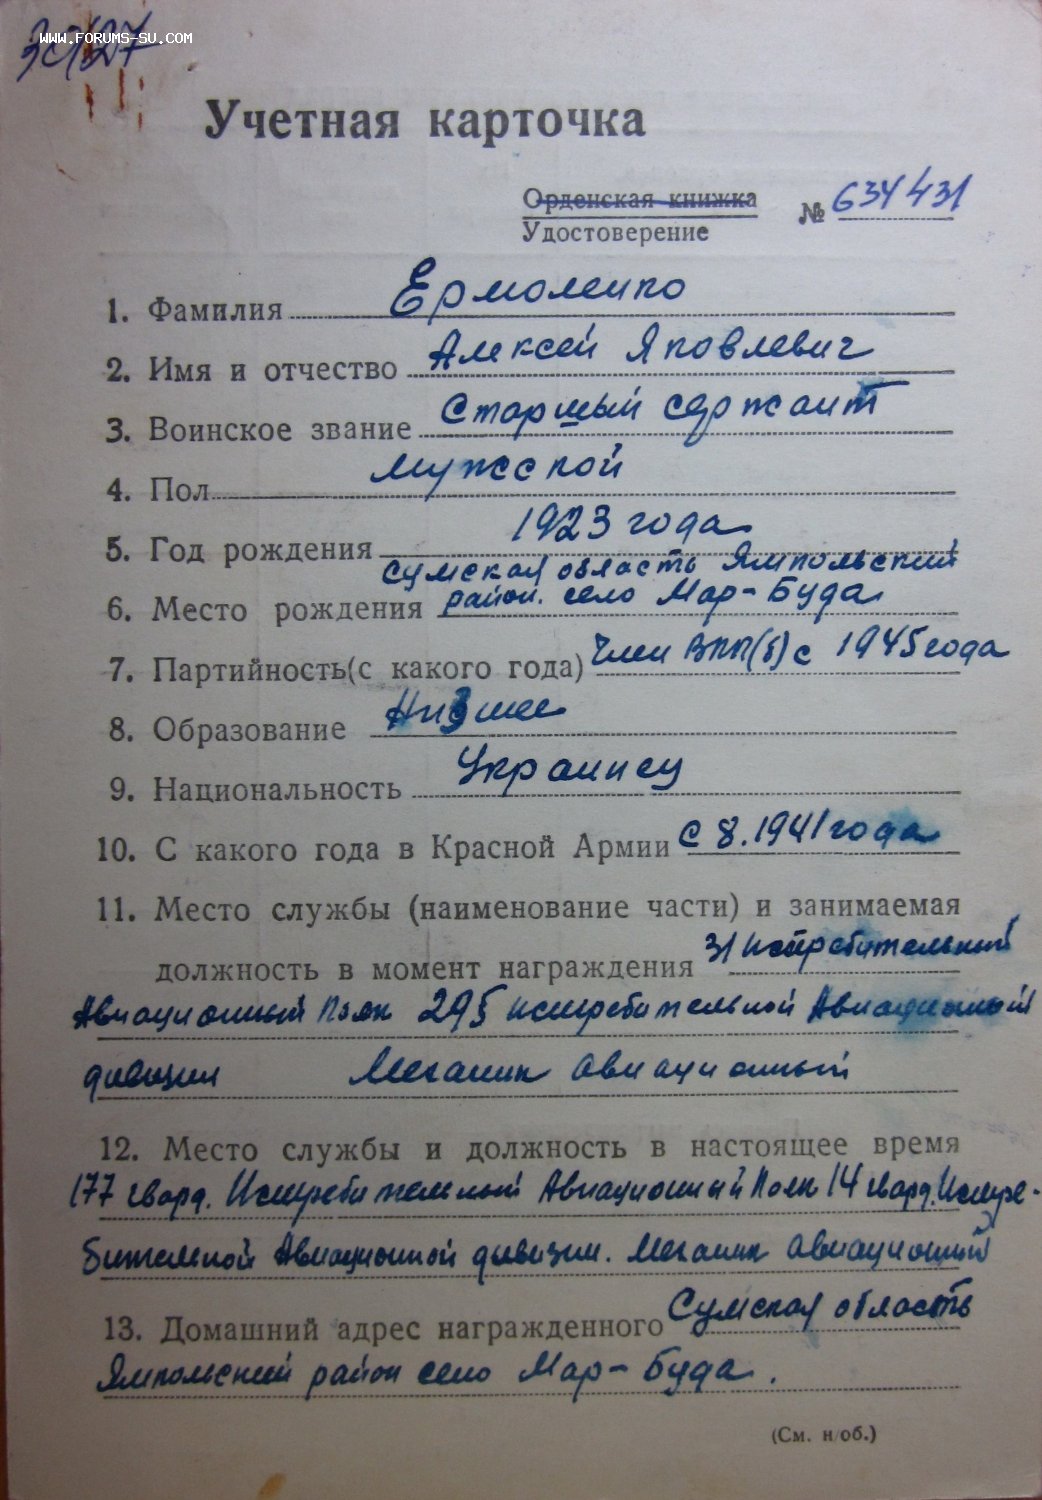 WWW.FORUMS-SU.COM
Учетная карточка
Орденская книжка
Удостоверение
№ 634431
1. Фамилия Ермоленко
2. Имя и отчество Алексей Яковлевич
3. Воинское звание Старший сержант
4. Пол Мужской
5. Год рождения 1923 года
Сумская область Ямпольский
6. Место рождения район. село Мар-Буда
7. Партийность (с какого года) Член ВКП(б) с 1945 года
8. Образование Низшее
9. Национальность Украинец
10. С какого года в Красной Армии с 8.1941 года
11. Место службы (наименование части) и занимаемая
должность в момент награждения 31 Истребительный
Авиационный Полк 295 истребительной Авиационный
дивизии Механик авиационный
12. Место службы и должность в настоящее время
177 гвард. Истребительный Авиационный Полк 14 гвард. Истре-
бительной Авиационной дивизии. Механик авиационный
13. Домашний адрес награжденного Сумская область
Ямпольский район село Мар-Буда.
(См. н/об.)